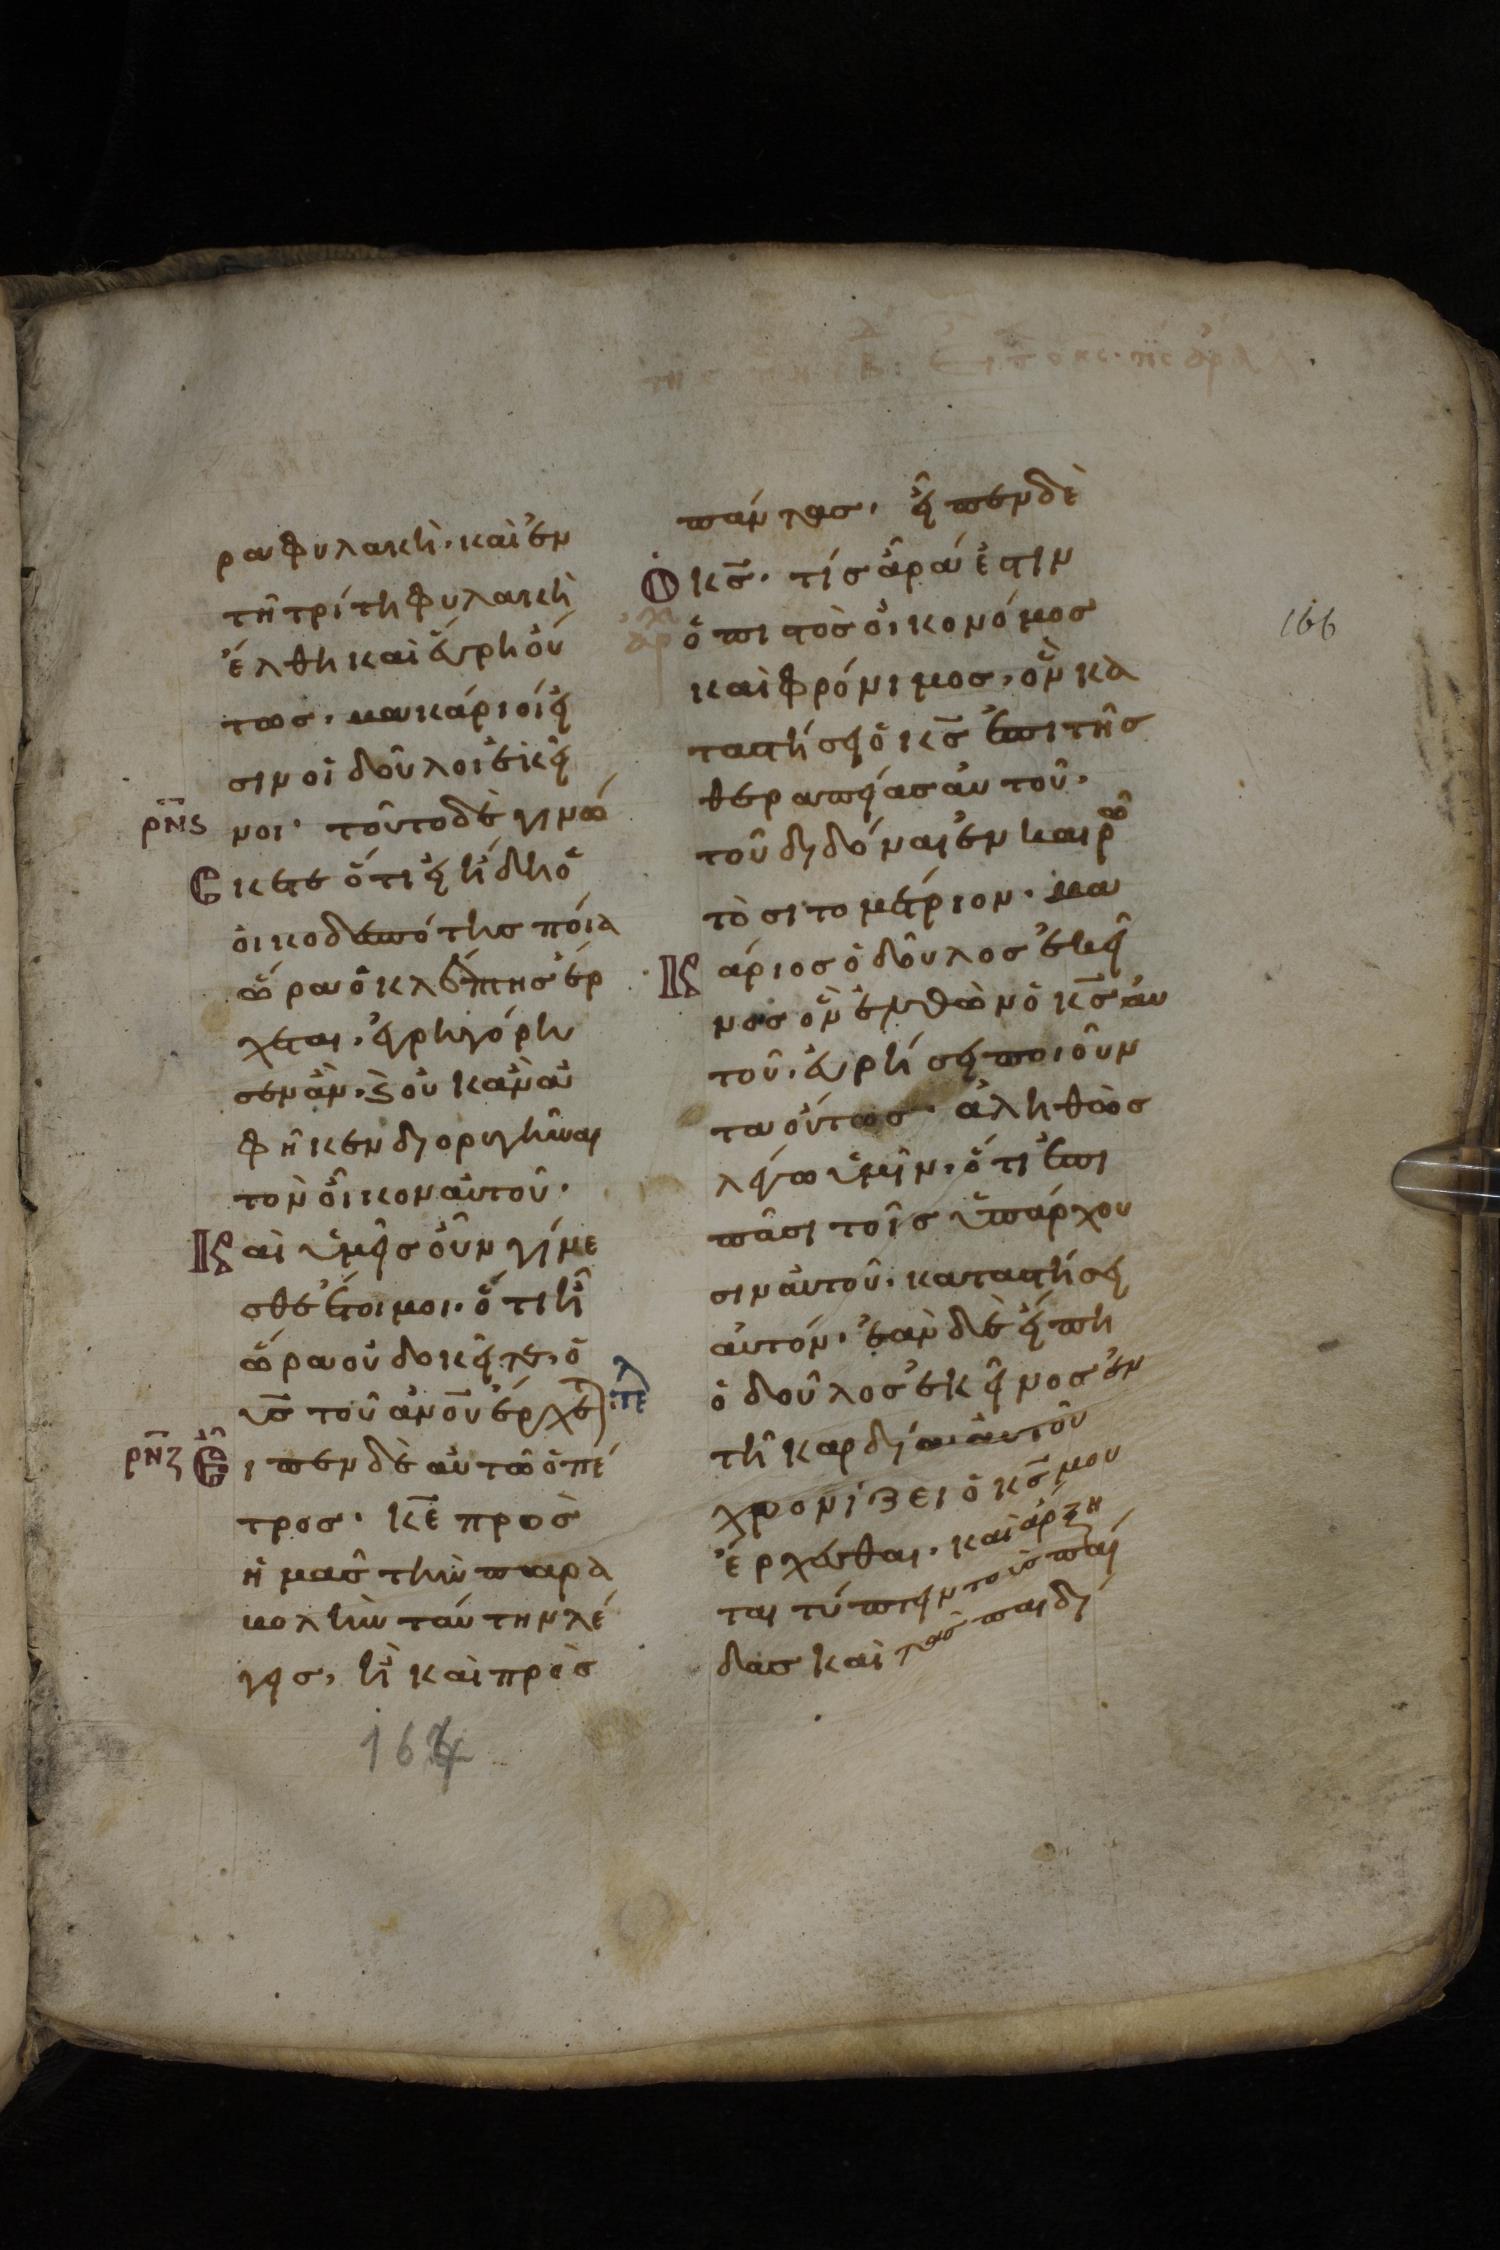 ρα φυλακὴ· καὶ ἐν
τῆ τρίτη φυλακὴ
ἔλθη καὶ ἕυρη ὅυ
τως. μακάριοί εἰ
σιν οἱ δοῦλοι ἐκεῖ
ρν̅ς νοι· τοῦτο δὲ γινώ
σκετε ὅτι εἰ ἤδη ὁ
ὀικοδεσπότης πόια
ὥρα ὁ κλέπτης ἐρ
χεται. ἐγρηγόρη
σεν ἀν. ϗ οὐκ ἀν ἀ
φῆκεν διορυγῆναι
τὸν οἶκον αὐτοῦ·
Καὶ ὑμεῖς οὖν γίνε
σθε ἕτοιμοι. ὅτι ἧ
ὥρα οὐ δοκεῖτε. ὁ
υ̅ς̅ τοῦ ἀν̅ο̅υ ἔρχετ τελ
ρν̅ζ Ειπεν δὲ αὐτῶ ὁ πέ
τρος. κ̅ε̅ πρὸσ
ἡμᾶς τὴν παρα
βολὴν ταύτην λέ
γεις, ἢ καὶ πρὸς
πάντας. εἶπεν δὲ
Ο κ̅ς̅. τίς ἄρα ἐστιν
ὁ πιστὸς οἰκονόμος
καὶ φρόνιμος, ὃν κα
ταστήσει ὁ κ̅ς̅ ἐπι τῆς
θεραπείας αὐτοῦ.
τοῦ διδόναι ἐν καιρῶ
τὸ σιτομέτριον. μα
Κάριος ὁ δοῦλος ἐκεῖ
νος ὃν ἐλθὼν ὁ κ̅ς̅ ἀυ
τοῦ. ἑυρήσει ποιοῦν
τα οὕτως· ἀληθῶς
λέγω ὑμῖν. ὅτι ἐπι
πᾶσι τοῖς ὑπάρχου
σιν αὐτοῦ. καταστήσει
ἀυτόν. ἐὰν δὲ εἴπη
ὁ δοῦλος ἐκεῖνος ἐν
τῆ καρδία αὐτοῦ
χρονίζει ὁ κ̅ς̅ μου
ἔρχεσθαι. καὶ ἄρξη
ται τύπτειν τοὺς παῖ
δας καὶ τὰς παιδί
166
164